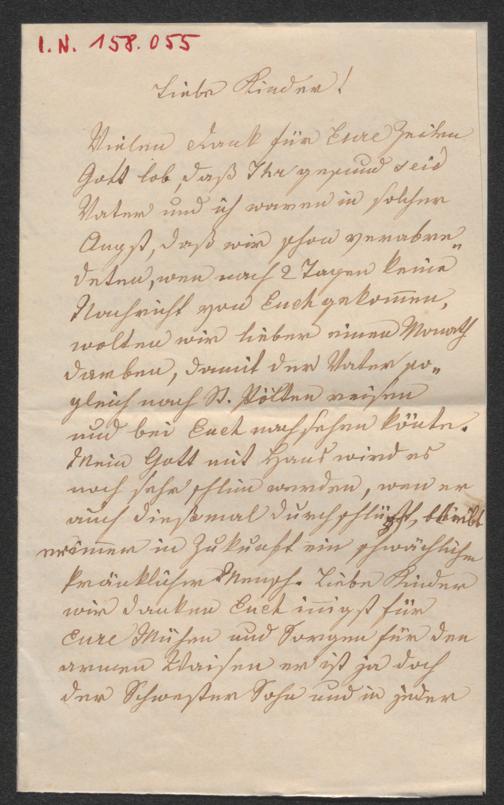 I.N. 158.055
Liebe Kinder!
Vielen Dank für Eure Zeilen
Gott lob, daß Ihr gesund seid
Vater und ich waren in solcher
Angst, daß wir schon verabre„
deten, wen nach 2 Tagen keine
Nachricht von Euch gekom̅en,
wolten wir lieber einen Monath
darben, damit der Vater so„
gleich nach St. Pölten reisen
und bei Euch nachsehen könte.
Mein Gott mit Hans wird es
noch sehr schlim werden, wen er
auch dießmal durchschlüpft, bleibt
er im̅er in Zukunft ein schwächlicher
kränklicher Mensch. Liebe Kinder
wir danken Euch in̅igst für
Eure Mühen und Sorgen für den
armen Waisen er ist ja doch
der Schwester Sohn und in jeder